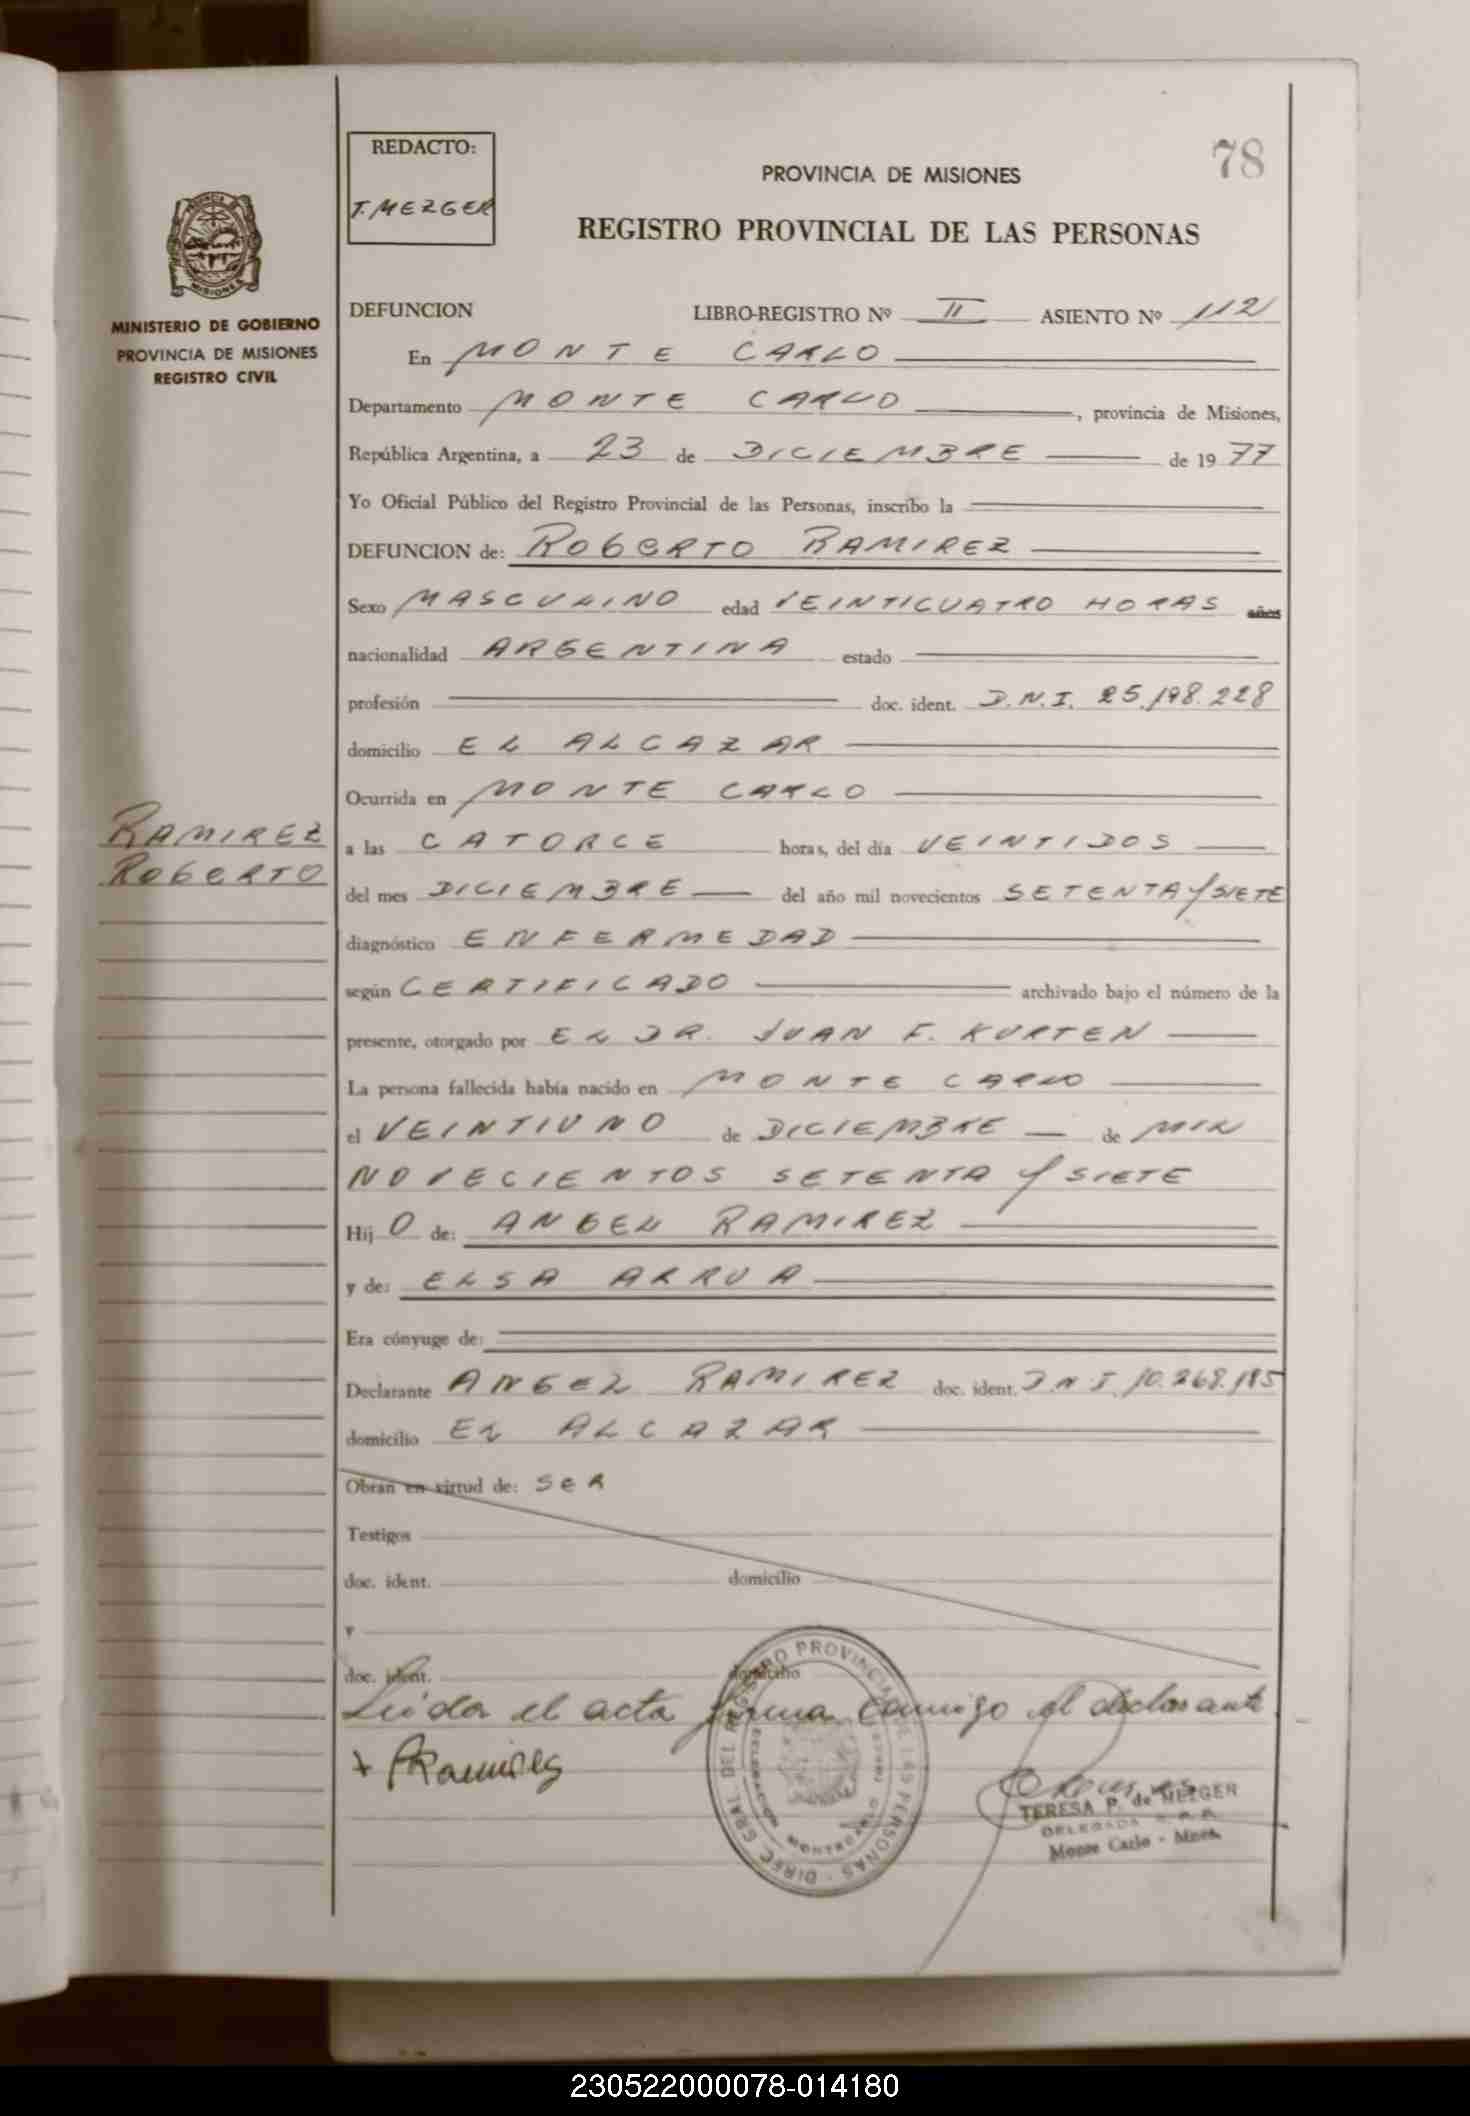 REDACTO:
T. MEZGER
78
PROVINCIA DE MISIONES
REGISTRO PROVINCIAL DE LAS PERSONAS
MINISTERIO DE GOBIERNO
PROVINCIA DE MISIONES
REGISTRO CIVIL
DEFUNCION LIBRO-REGISTRO Nº II ASIENTO Nº 112
En MONTE CARLO
Departamento MONTE CARLO, provincia de Misiones,
República Argentina, a 23 de DICIEMBRE de 1977
Yo Oficial Público del Registro Provincial de las Personas, inscribo la
DEFUNCION de: ROBERTO RAMIREZ
Sexo MASCULINO edad VEINTICUATRO HORAS años
nacionalidad ARGENTINA estado
profesión doc. ident. D.N.I. 25.198.228
domicilio EL ALCAZAR
Ocurrida en MONTE CARLO
RAMIREZ
ROBERTO
a las CATORCE horas, del día VEINTIDOS
del mes DICIEMBRE del año mil novecientos SETENTA y SIETE
diagnóstico ENFERMEDAD
según CERTIFICADO archivado bajo el número de la
presente, otorgado por EL DR. JUAN F. KURTEN
La persona fallecida había nacido en MONTE CARLO
el VEINTIUNO de DICIEMBRE de MIL
NOVECIENTOS SETENTA y SIETE
Hij O de: ANGEL RAMIREZ
y de: ELSA ARRUA
Era cónyuge de:
Declarante ANGEL RAMIREZ doc. ident. D N I. 10.268.185
domicilio EL ALCAZAR
Obran en virtud de: SER
Testigos
doc. ident. domicilio
y
doc. ident. domicilio
Leida el acta firma conmigo el declarante
+ Ramirez
DIREC. GRAL. DEL REGISTRO PROVINCIAL DE LAS PERSONAS
MONTECARLO
TERESA P. de MEZGER
DELEGADA
Monte Carlo - Mnes.
230522000078-014180